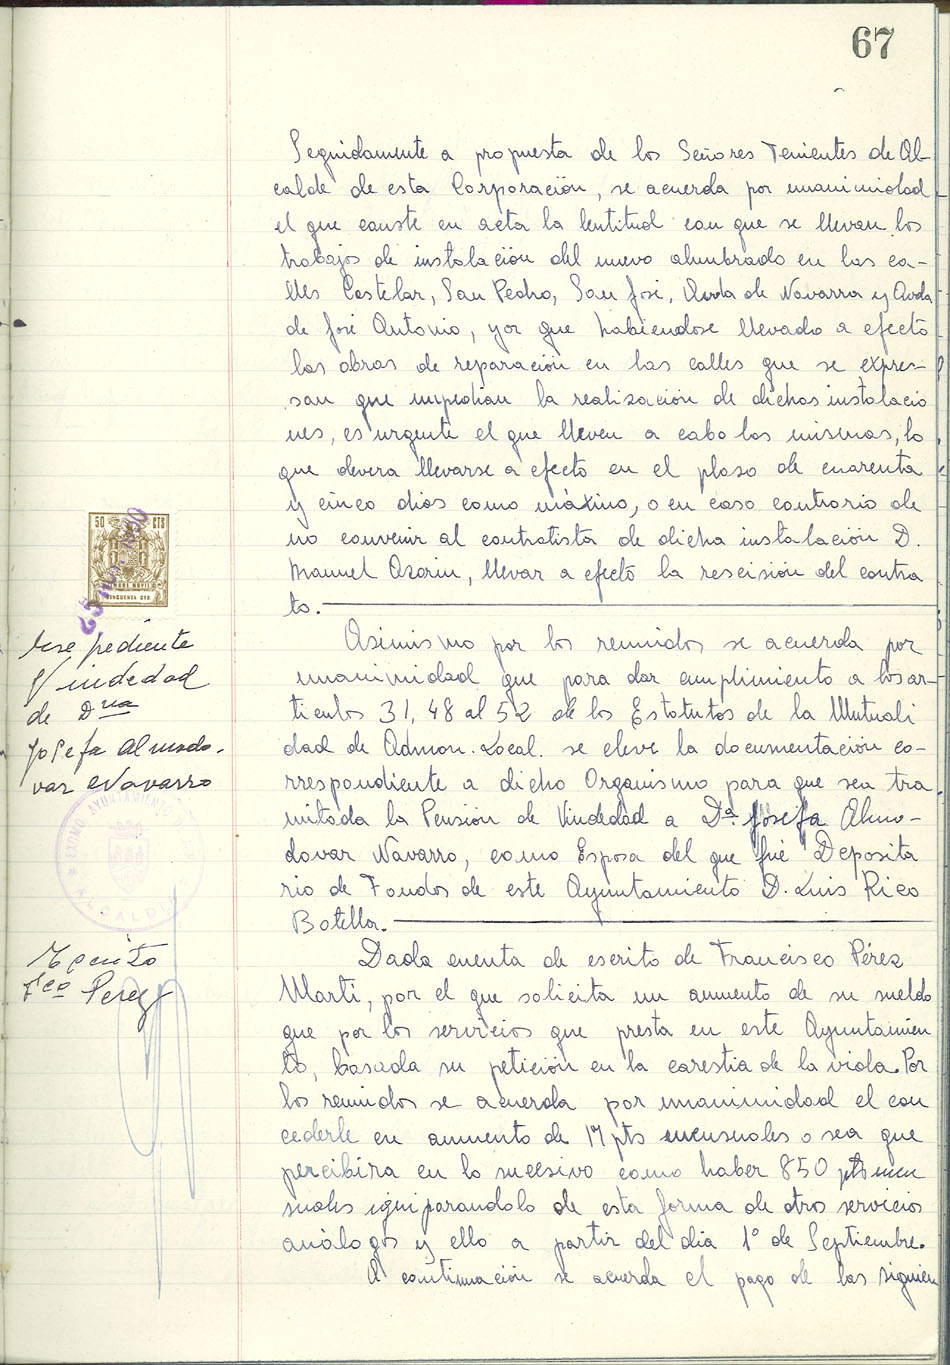 67
Seguidamente a propuesta de los Señores Tenientes de Al-
calde de esta Corporación, se acuerda por unanimidad
el que conste en acta la lentitud con que se llevan los
trabajos de instalación del nuevo alumbrado en las ca-
lles Castelar, San Pedro, San José, Avda de Navarra y Avda
de José Antonio, y or que habiendose llevado a efecto
las obras de reparación en las calles que se expre-
san que impedian la realización de dichas instalacio
nes, es urgente el que lleven a cabo las mismas, lo
que devera llevarse a efecto en el plaso de cuarenta
y cinco dias como máximo, o en caso contrario de
no convenir al contratista de dicha instalación D.
Manuel Azorin, llevar a efecto la rescisión del contra
to.
50 CTS
TIMBRE MOVIL
CINCUENTA CTS
Asimismo por los reunidos se acuerda por
unanimidad que para dar cumplimiento a los ar-
ticulos 31, 48 al 52 de los Estatutos de la Mutuali
dad de Admon. Local. se eleve la documentación co-
rrespondiente a dicho Organismo para que sea tra
mitada la Pensión de Viudedad a Dª. Josefa Almo-
dovar Navarro, como Esposa del que fué Deposita
rio de Fondos de este Ayuntamiento D. Luis Rico
Botella.
pediente
Viudedad
de Dña
Josefa Almodo-
var Navarro
EXCMO AYUNTAMIENTO
ALCALDIA
Dada cuenta de escrito de Francisco Pérez
Marti, por el que solicita un aumento de su sueldo
que por los servicios que presta en este Ayuntamien
to, basada su petición en la carestia de la vida. Por
los reunidos se acuerda por unanimidad el con
cederle en aumento de 17 pts mensuales o sea que
percibira en lo sucesivo como haber 850 pts men
suales iguiparandolo de esta forma de otros servicios
análogos y ello a partir del dia 1º de Septiembre.
Escrito
Fco Perez
A continuación se acuerda el pago de las siguien